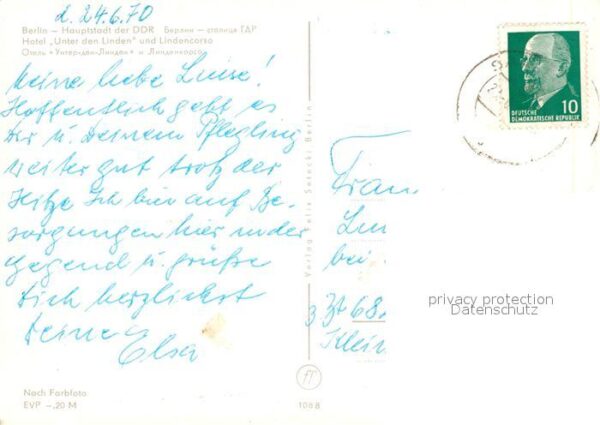 d. 24.6.70
Berlin – Hauptstadt der DDR Берлин – столица ГДР
Hotel „Unter den Linden" und Lindencorso
Отель «Унтер-ден-Линден» и «Линденкорсо»
Meine liebe Luise!
Hoffentlich geht es
Dir u. Deinem Pflegling
weiter gut trotz der
Hitze. Ich bin auf Be-
sorgungen hier in der
Gegend u. grüße
Dich herzlichst
Deine
Elsa
Nach Farbfoto
EVP –,20 M
Verlag Felix Setecki Berlin
1068
10
DEUTSCHE
DEMOKRATISCHE REPUBLIK
Frau
bei
z Zt 68
Klein
privacy protection
Datenschutz